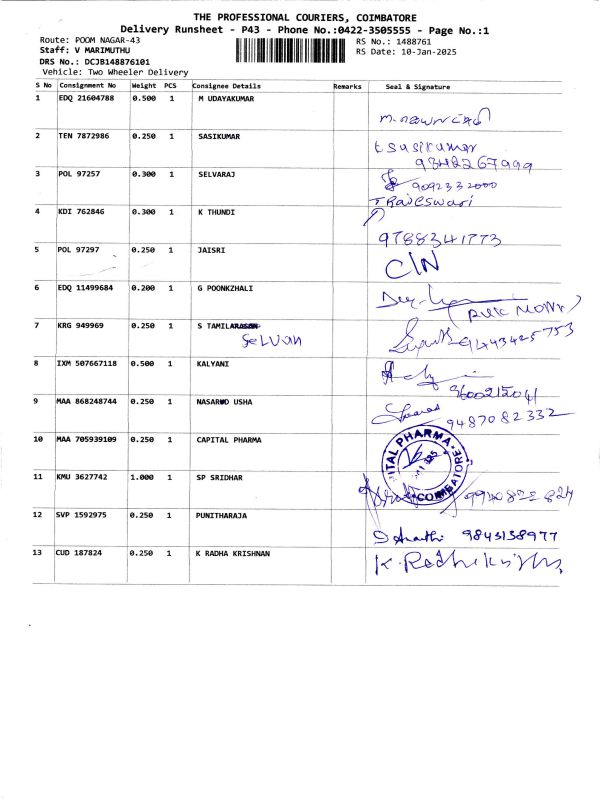 THE PROFESSIONAL COURIERS, COIMBATORE
Delivery Runsheet - P43 - Phone No.:0422-3505555 - Page No.:1
Route: POOM NAGAR-43
RS No.: 1488761
Staff: V MARIMUTHU
RS Date: 10-Jan-2025
DRS No.: DCJB148876101
Vehicle: Two Wheeler Delivery
S No Consignment No Weight PCS Consignee Details Remarks Seal & Signature
1 EDQ 21604788 0.500 1 M UDAYAKUMAR
2 TEN 7872986 0.250 1 SASIKUMAR
t sasikumar
9342267999
3 POL 97257 0.300 1 SELVARAJ
9092332000
T Rajeswari
4 KDI 762846 0.300 1 K THUNDI
9788341773
5 POL 97297 0.250 1 JAISRI
C/N
6 EDQ 11499684 0.200 1 G POONKZHALI
7 KRG 949969 0.250 1 S TAMILARASAN
SELVan
9443425753
8 IXM 507667118 0.500 1 KALYANI
9600215041
9 MAA 868248744 0.250 1 NASARUD USHA
9487082332
10 MAA 705939109 0.250 1 CAPITAL PHARMA
ITAL PHARMA
COIMBATORE
11 KMU 3627742 1.000 1 SP SRIDHAR
9940822824
12 SVP 1592975 0.250 1 PUNITHARAJA
9843138977
13 CUD 187824 0.250 1 K RADHA KRISHNAN
K. Radhakrishnan